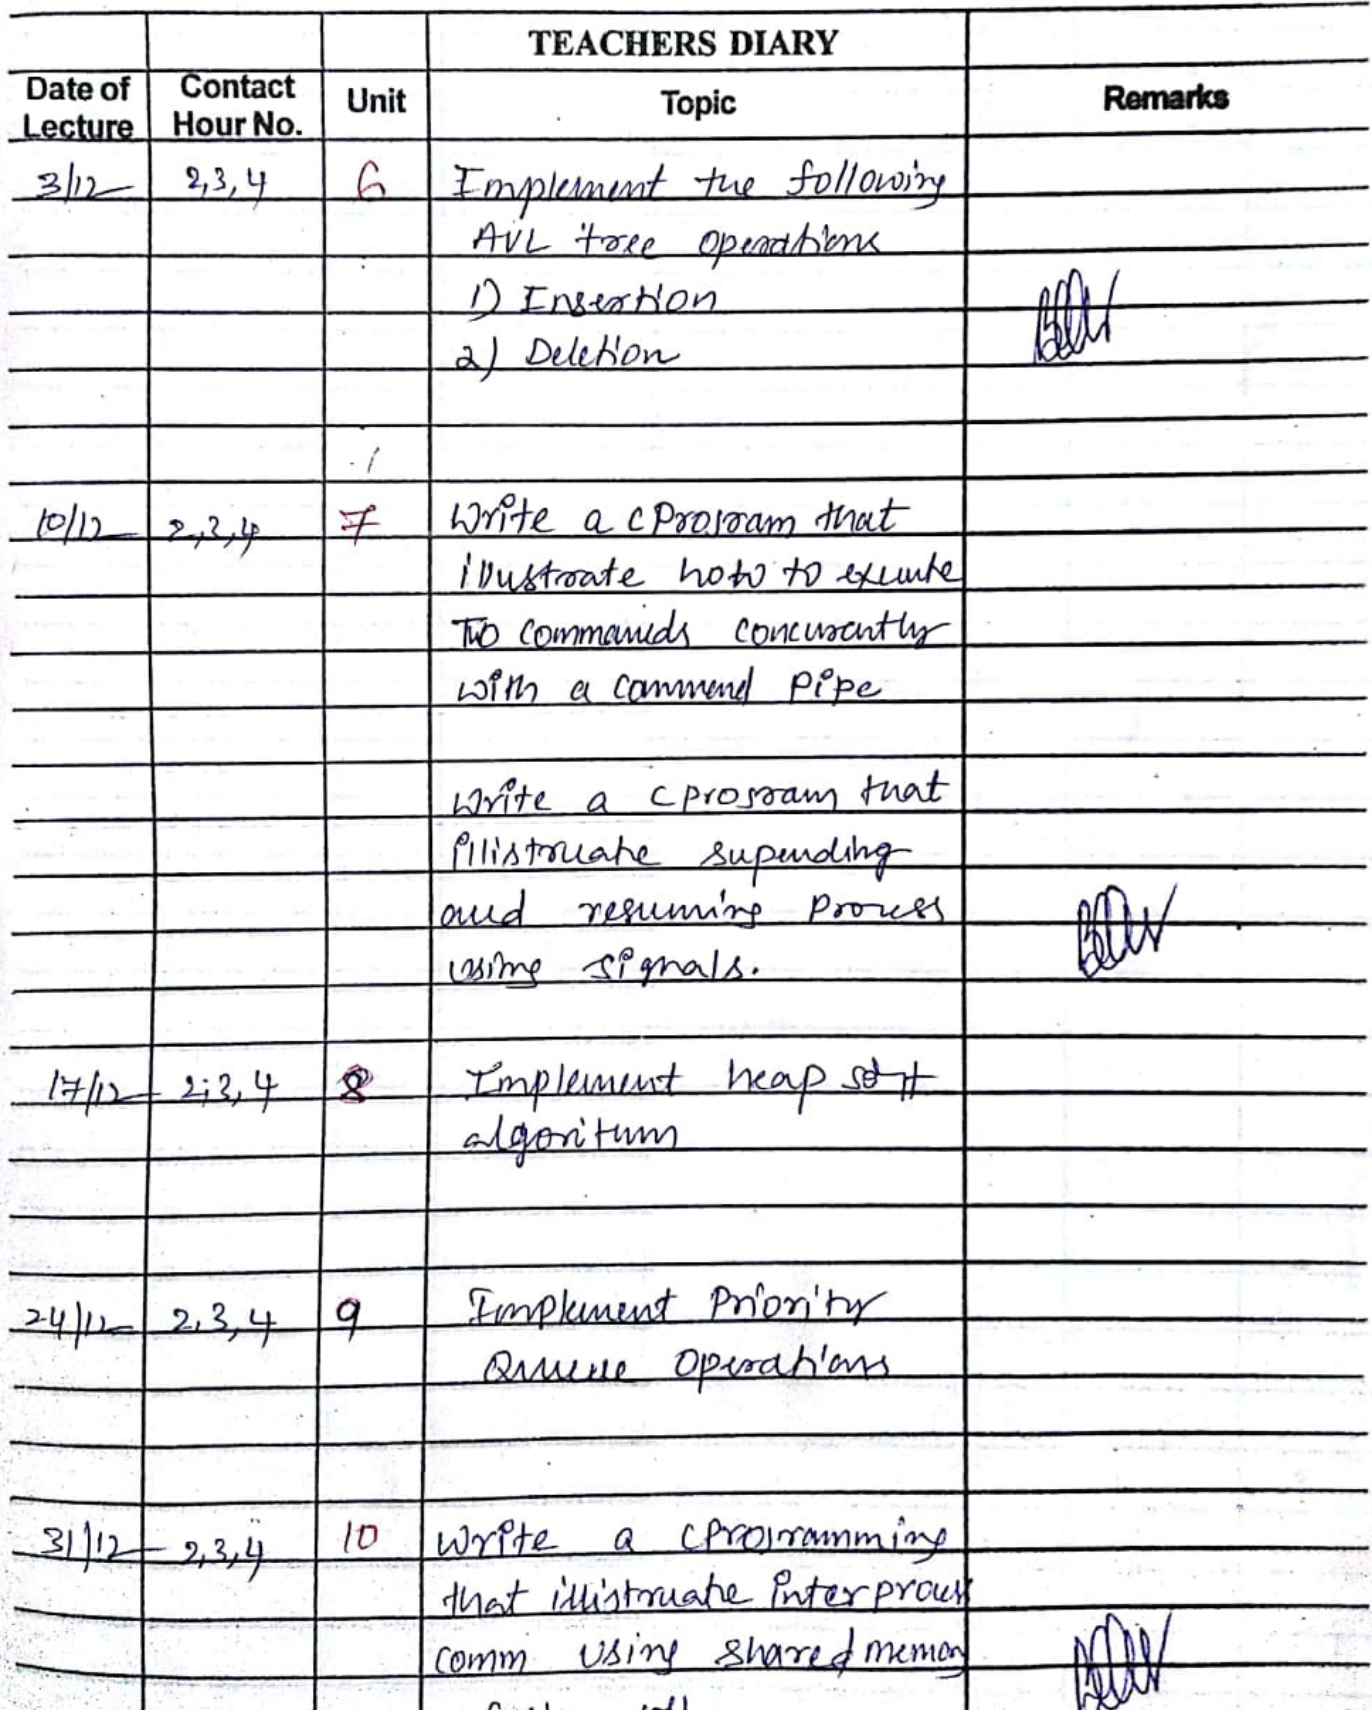 TEACHERS DIARY
Date of Lecture Contact Hour No. Unit Topic Remarks
3/12 2,3,4 6 Implement the following
AVL tree operations
1) Insertion
2) Deletion
10/12 2,3,4 7 Write a c Program that
illustrate how to execute
two commands concurrently
with a command pipe
write a c program that
illistruate supending
and resuming process
using signals.
17/12 2,3,4 8 Implement heap sort
algorithm
24/12 2,3,4 9 Implement Priority
Queue operations
31/12 2,3,4 10 Write a c programming
that illistruate inter process
comm using shared memory